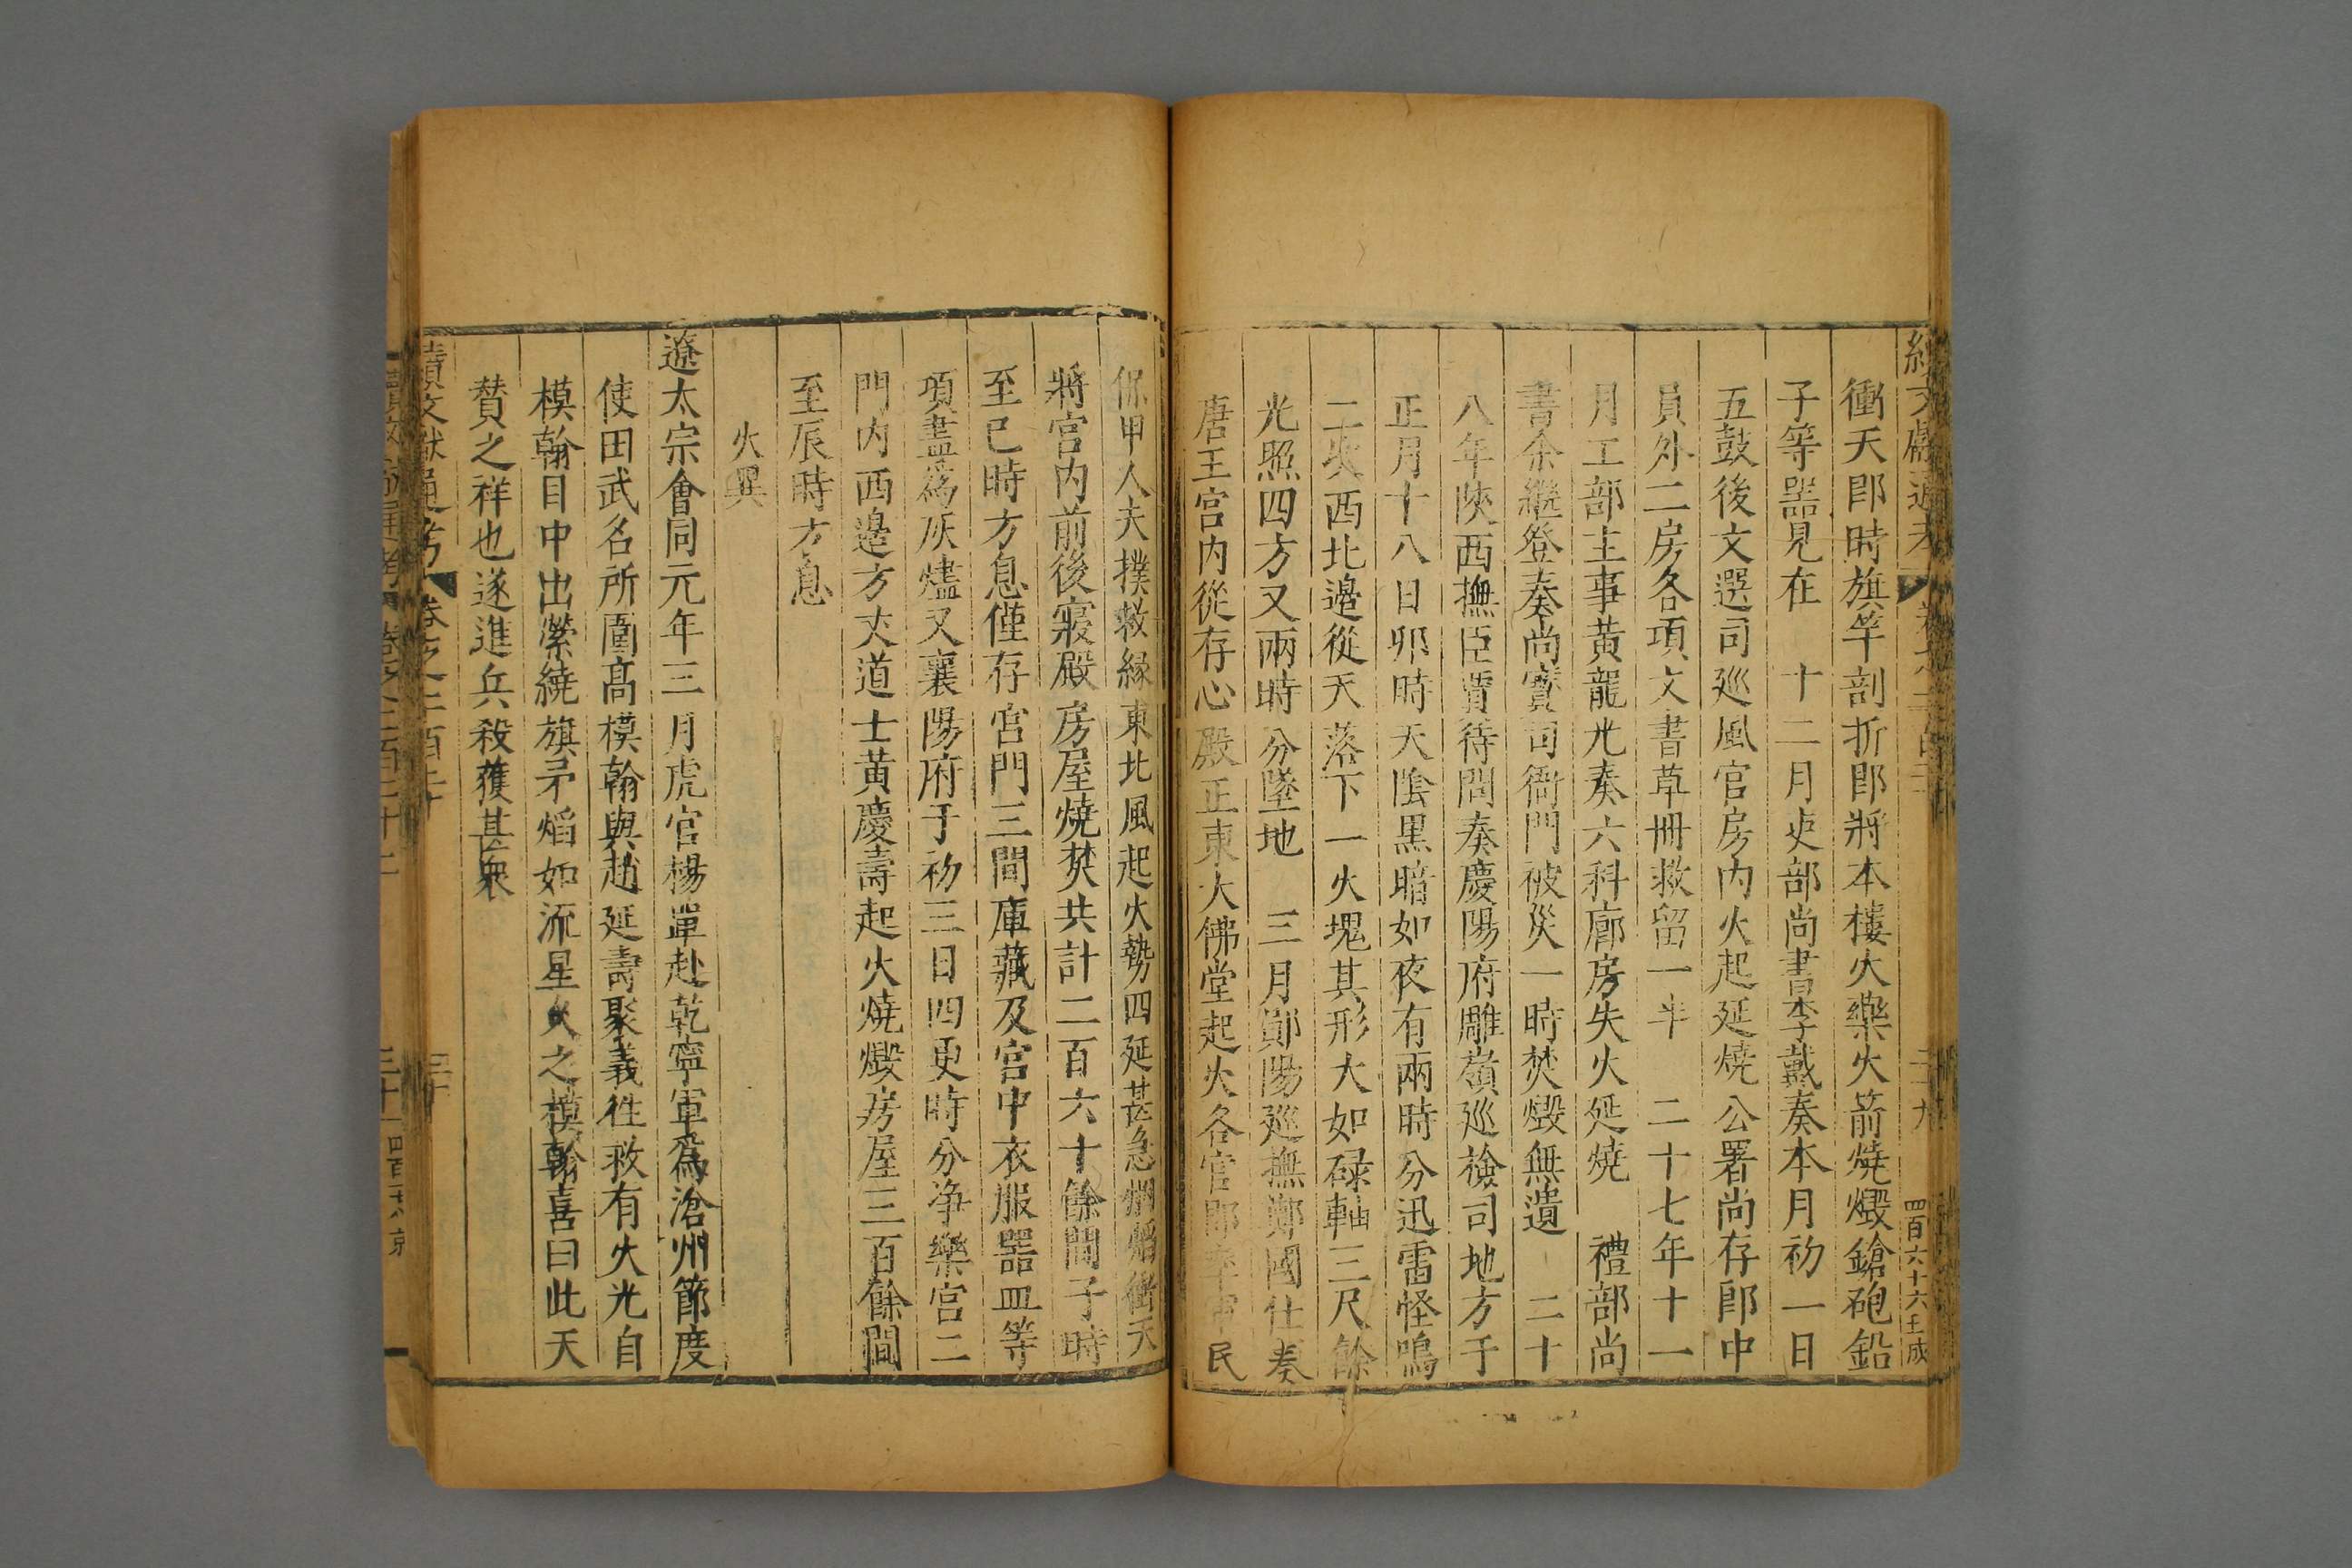 續文獻通考 卷之二百二十 二十九 四百六十六 王成
衝天即時旗竿剖折即將本樓火藥火箭燒燬鎗砲鉛
子等器見在 十二月吏部尚書李戴奏本月初一日
五鼓後文選司廵風官房内火起延燒公署尚存郎中
員外二房各項文書草冊救留一半 二十七年十一
月工部主事黃龍光奏六科廊房失火延燒 禮部尚
書余繼登奏尚寳司衙門被災一時焚燬無遺 二十
八年陝西撫臣賈待問奏慶陽府雕嶺廵檢司地方于
正月十八日卯時天陰黒暗如夜有兩時分迅雷怪鳴
二次西北邉從天落下一火塊其形大如碌軸三尺餘
光照四方又兩時分墜地 三月鄖陽廵撫鄭國仕奏
唐王宮内從存心殿正東大佛堂起火各官即率軍民
保甲人夫撲救縁東北風起火勢四延甚急烟焰衝天
將宮内前後寢殿房屋燒焚共計二百六十餘間子時
至巳時方息僅存宮門三間庫藏及宮中衣服器皿等
項盡爲灰燼又襄陽府于初三日四更時分淨樂宮二
門内西邉方丈道士黃慶壽起火燒燬房屋三百餘間
至辰時方息
火異
遼太宗會同元年三月虎官楊單赴乾寧軍爲滄州節度
使田武名所圍髙模翰與趙延壽聚義徃救有火光自
模翰目中出縈繞旗矛焰如流星久之模翰喜曰此天
賛之祥也遂進兵殺獲甚衆
續文獻通考 卷之二百二十 三十